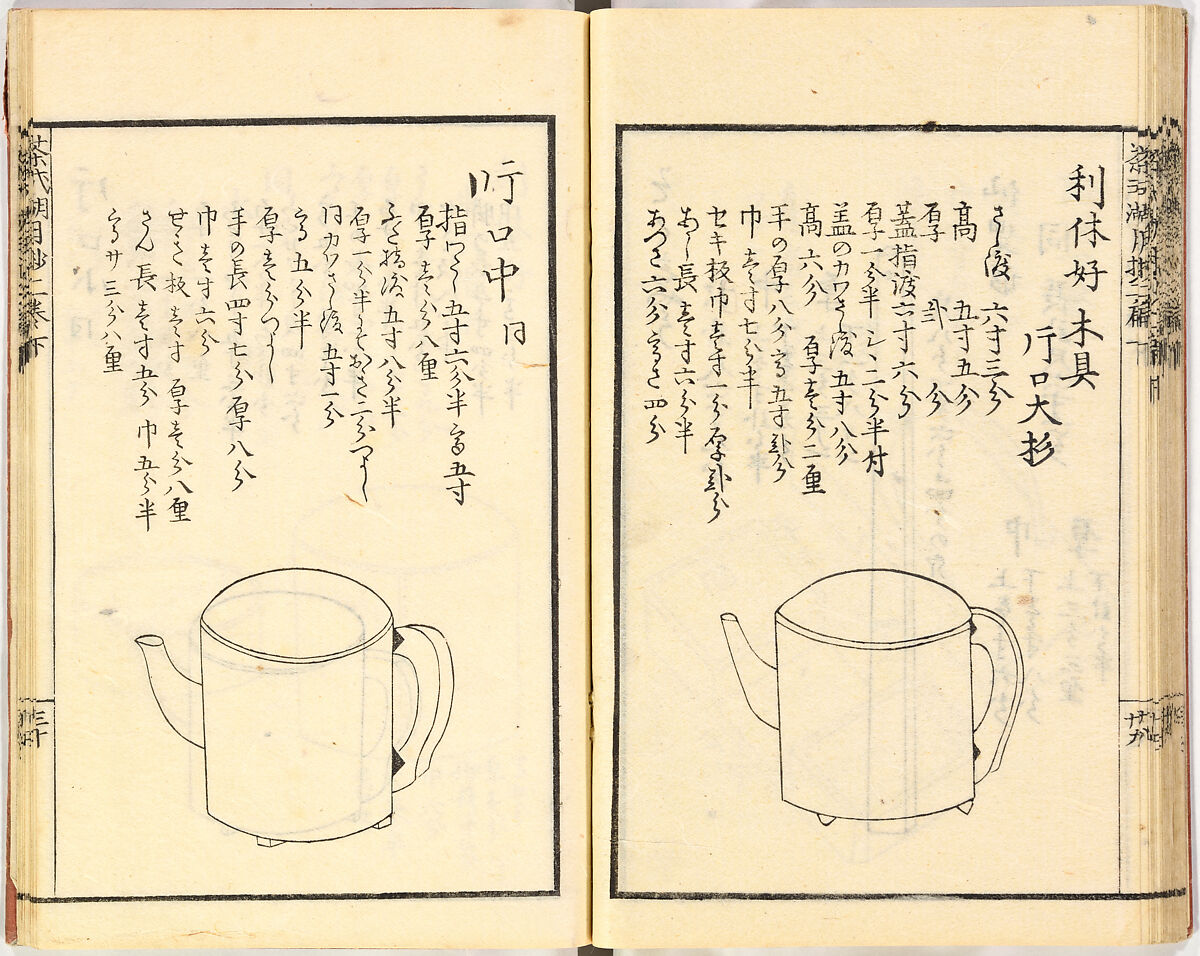 利休好木具
片口大杉
さし渡 六寸三分
高 五寸五分
厚 弐分
蓋指渡六寸六分
厚一分半 二分半村
盖のカワさし渡 五寸八分
高 六分 厚壱分二厘
手の厚八分 高五寸弐分
巾壱寸七分半
セキ板巾壱寸一分厚弐分
あし長壱寸六分半
あつさ六分高さ四分
片口中 同
指わたし五寸六分半高五寸
厚壱分八厘
ふた指渡五寸八分半
厚一分半
同カワさし渡 五寸一分
高五分半
厚壱分
手の長四寸七分厚八分
巾壱寸六分
せき板壱寸 厚壱分八厘
さん長壱寸五分巾五分半
高サ三分八厘
三十
廿九